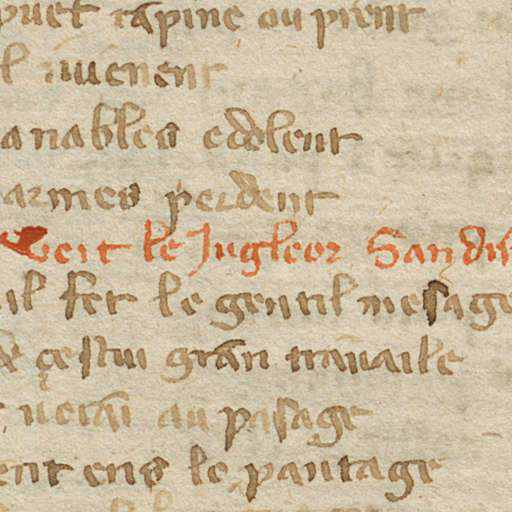 puet rapine ou prent
l iuuenent
anables e dolent
armes perdent
Veit le Jugleor San dis
il fet le gentil mesage
& çestui gran trauaile
uerai au pasage
ent ens le pautage